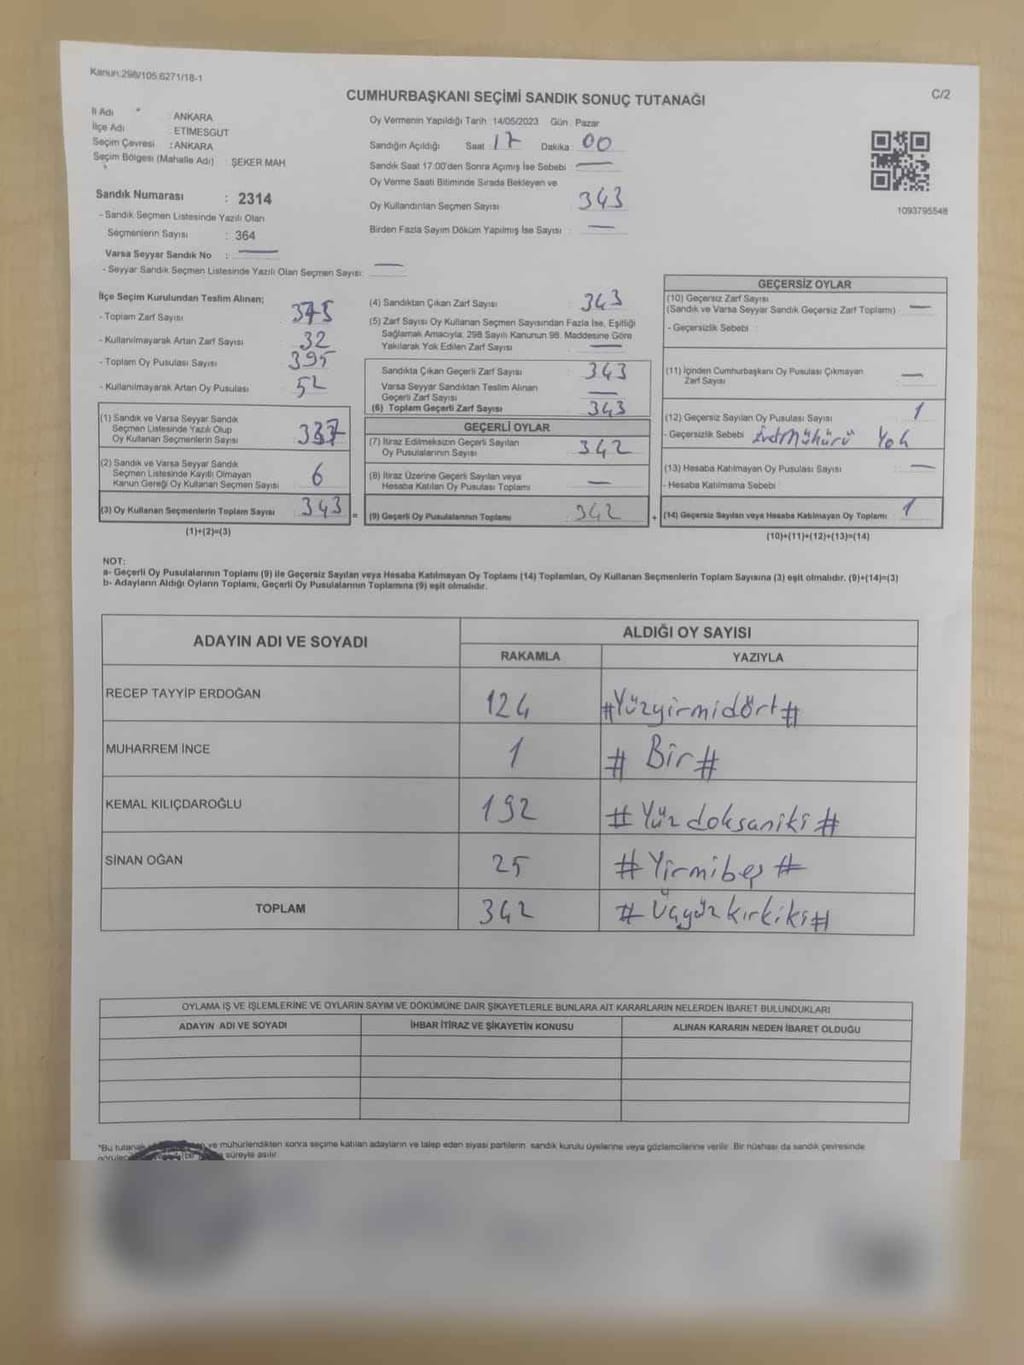 Kanun:298/105.6271/18-1
C/2
CUMHURBAŞKANI SEÇİMİ SANDIK SONUÇ TUTANAĞI
İl Adı : ANKARA
İlçe Adı : ETİMESGUT
Seçim Çevresi : ANKARA
Seçim Bölgesi (Mahalle Adı) : ŞEKER MAH
Sandık Numarası : 2314
- Sandık Seçmen Listesinde Yazılı Olan
Seçmenlerin Sayısı : 364
Varsa Seyyar Sandık No : —
- Seyyar Sandık Seçmen Listesinde Yazılı Olan Seçmen Sayısı: —
Oy Vermenin Yapıldığı Tarih :14/05/2023 Gün : Pazar
Sandığın Açıldığı Saat : 17 Dakika : 00
Sandık Saat 17:00'den Sonra Açımış İse Sebebi : —
Oy Verme Saati Bitiminde Sırada Bekleyen ve
Oy Kullandırılan Seçmen Sayısı 343
Birden Fazla Sayım Döküm Yapılmış İse Sayısı : —
1093795548
İlçe Seçim Kurulundan Teslim Alınan;
- Toplam Zarf Sayısı 375
- Kullanılmayarak Artan Zarf Sayısı 32
- Toplam Oy Pusulası Sayısı 395
- Kullanılmayarak Artan Oy Pusulası 52
(1) Sandık ve Varsa Seyyar Sandık
Seçmen Listesinde Yazılı Olup
Oy Kullanan Seçmenlerin Sayısı 337
(2) Sandık ve Varsa Seyyar Sandık
Seçmen Listesinde Kayıtlı Olmayan
Kanun Gereği Oy Kullanan Seçmen Sayısı 6
(3) Oy Kullanan Seçmenlerin Toplam Sayısı 343 =
(1)+(2)=(3)
(4) Sandıktan Çıkan Zarf Sayısı 343
(5) Zarf Sayısı Oy Kullanan Seçmen Sayısından Fazla İse, Eşitliği
Sağlamak Amacıyla; 298 Sayılı Kanunun 98. Maddesine Göre
Yakılarak Yok Edilen Zarf Sayısı —
Sandıkta Çıkan Geçerli Zarf Sayısı 343
Varsa Seyyar Sandıktan Teslim Alınan
Geçerli Zarf Sayısı —
(6) Toplam Geçerli Zarf Sayısı 343
GEÇERLİ OYLAR
(7) İtiraz Edilmeksizin Geçerli Sayılan
Oy Pusulalarının Sayısı 342
(8) İtiraz Üzerine Geçerli Sayılan veya
Hesaba Katılan Oy Pusulası Toplamı —
(9) Geçerli Oy Pusulalarının Toplamı 342 +
GEÇERSİZ OYLAR
(10) Geçersiz Zarf Sayısı
(Sandık ve Varsa Seyyar Sandık Geçersiz Zarf Toplamı) —
- Geçersizlik Sebebi :
(11) İçinden Cumhurbaşkanı Oy Pusulası Çıkmayan
Zarf Sayısı —
(12) Geçersiz Sayılan Oy Pusulası Sayısı 1
- Geçersizlik Sebebi Yok
(13) Hesaba Katılmayan Oy Pusulası Sayısı —
- Hesaba Katılmama Sebebi :
(14) Geçersiz Sayılan veya Hesaba Katılmayan Oy Toplamı 1
(10)+(11)+(12)+(13)=(14)
NOT:
a- Geçerli Oy Pusulalarının Toplamı (9) ile Geçersiz Sayılan veya Hesaba Katılmayan Oy Toplamı (14) Toplamları, Oy Kullanan Seçmenlerin Toplam Sayısına (3) eşit olmalıdır. (9)+(14)=(3)
b- Adayların Aldığı Oyların Toplamı, Geçerli Oy Pusulalarının Toplamına (9) eşit olmalıdır.
ADAYIN ADI VE SOYADI
ALDIĞI OY SAYISI
RAKAMLA YAZIYLA
RECEP TAYYİP ERDOĞAN 124 #Yüzyirmidört#
MUHARREM İNCE 1 # Bir #
KEMAL KILIÇDAROĞLU 192 # Yüzdoksaniki #
SİNAN OĞAN 25 # Yirmibeş #
TOPLAM 342 # Üçyüzkırkiki#
OYLAMA İŞ VE İŞLEMLERİNE VE OYLARIN SAYIM VE DÖKÜMÜNE DAİR ŞİKAYETLERLE BUNLARA AİT KARARLARIN NELERDEN İBARET BULUNDUKLARI
ADAYIN ADI VE SOYADI İHBAR İTİRAZ VE ŞİKAYETİN KONUSU ALINAN KARARIN NEDEN İBARET OLDUĞU
*Bu tutanak ve mühürlendikten sonra seçime katılan adayların ve talep eden siyasi partilerin sandık kurulu üyelerine veya gözlemcilerine verilir. Bir nüshası da sandık çevresinde
süreyle asılır.